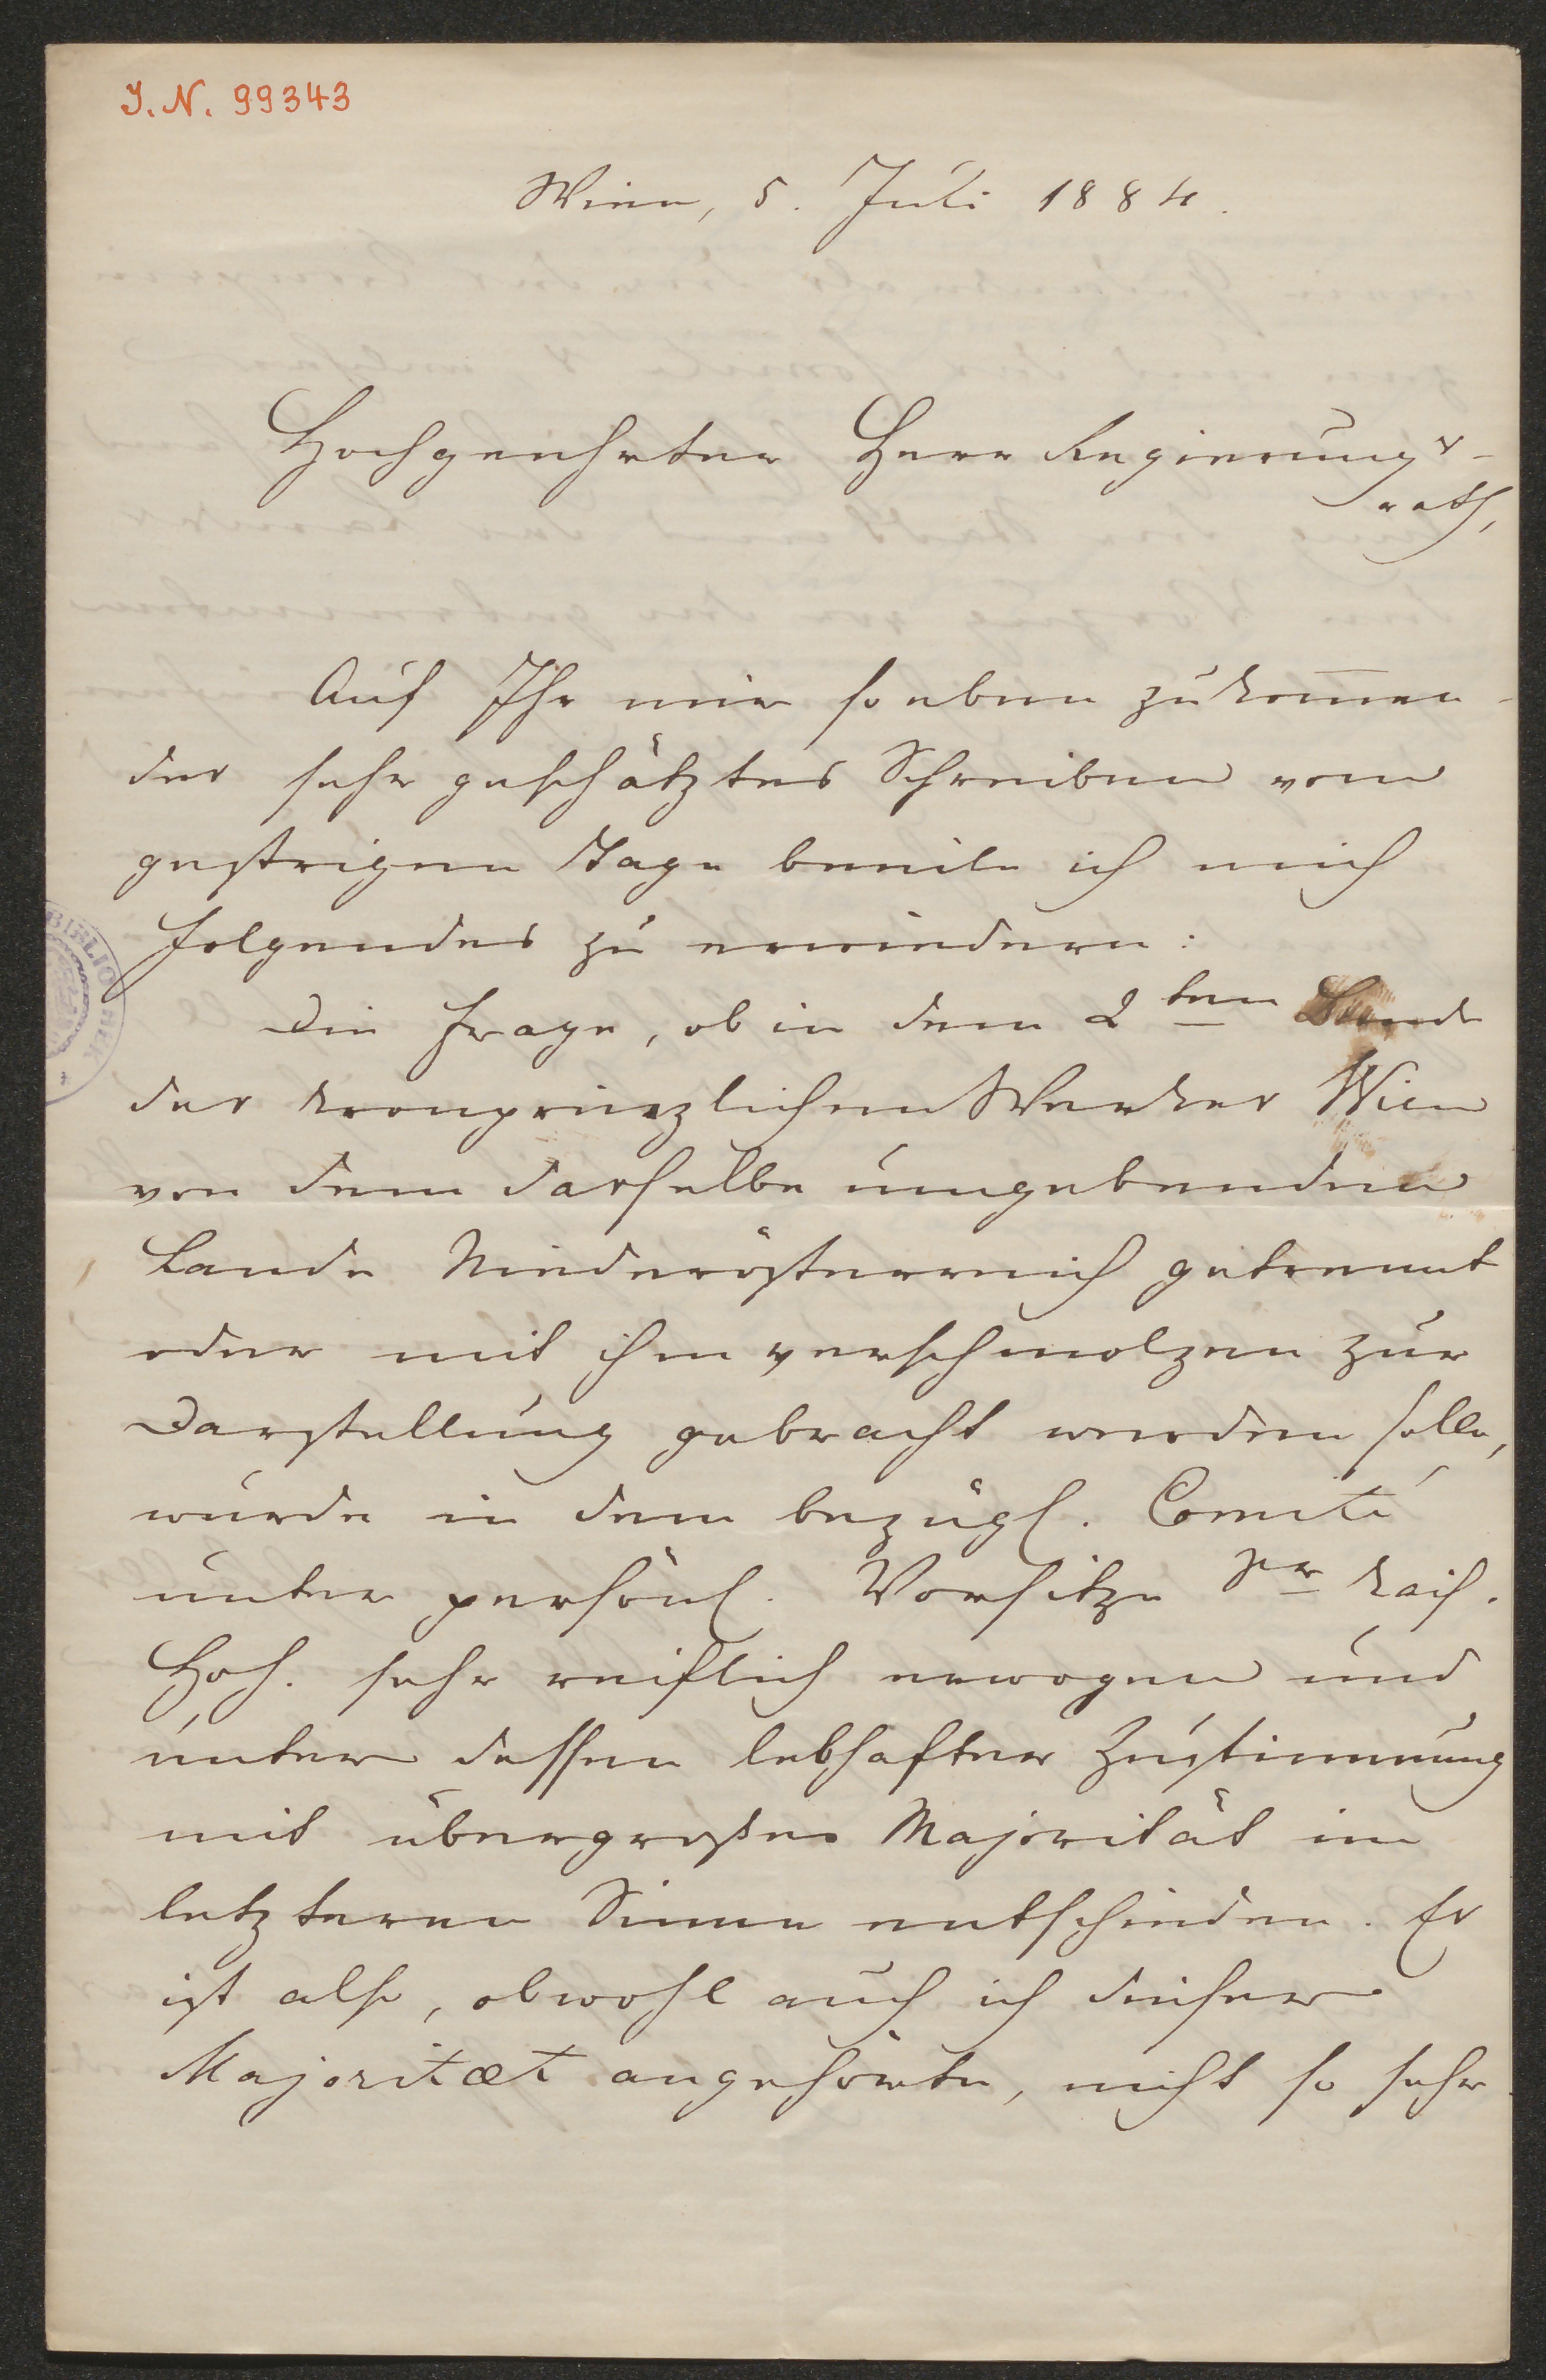 I. N. 99343
Wien, 5. Juli 1884.
Hochgeehrter Herr Regierungs-
rath,
Auf Ihr mir soeben zukom̅en-
des sehr geschätztes Schreiben vom
gestrigen Tage beeile ich mich
Folgendes zu erwiedern:
Die Frage, ob in dem 2ten Bande
des kronprinzlichen Werkes Wien
von dem dasselbe umgebenden
Lande Niederösterreich getrennt
oder mit ihm verschmolzen zur
Darstellung gebracht werden solle,
wurde in dem bezügl. Comité
unter persönl. Vorsitze Sr kais.
Hoh. sehr reiflich erwogen und
unter dessen lebhafter Zustimmung
mit übergroßer Majorität im
letzteren Sinne entschieden. Es
ist also, obwohl auch ich dieser
Majoritæt angehörte, nicht so sehr
BIBLIOTHEK